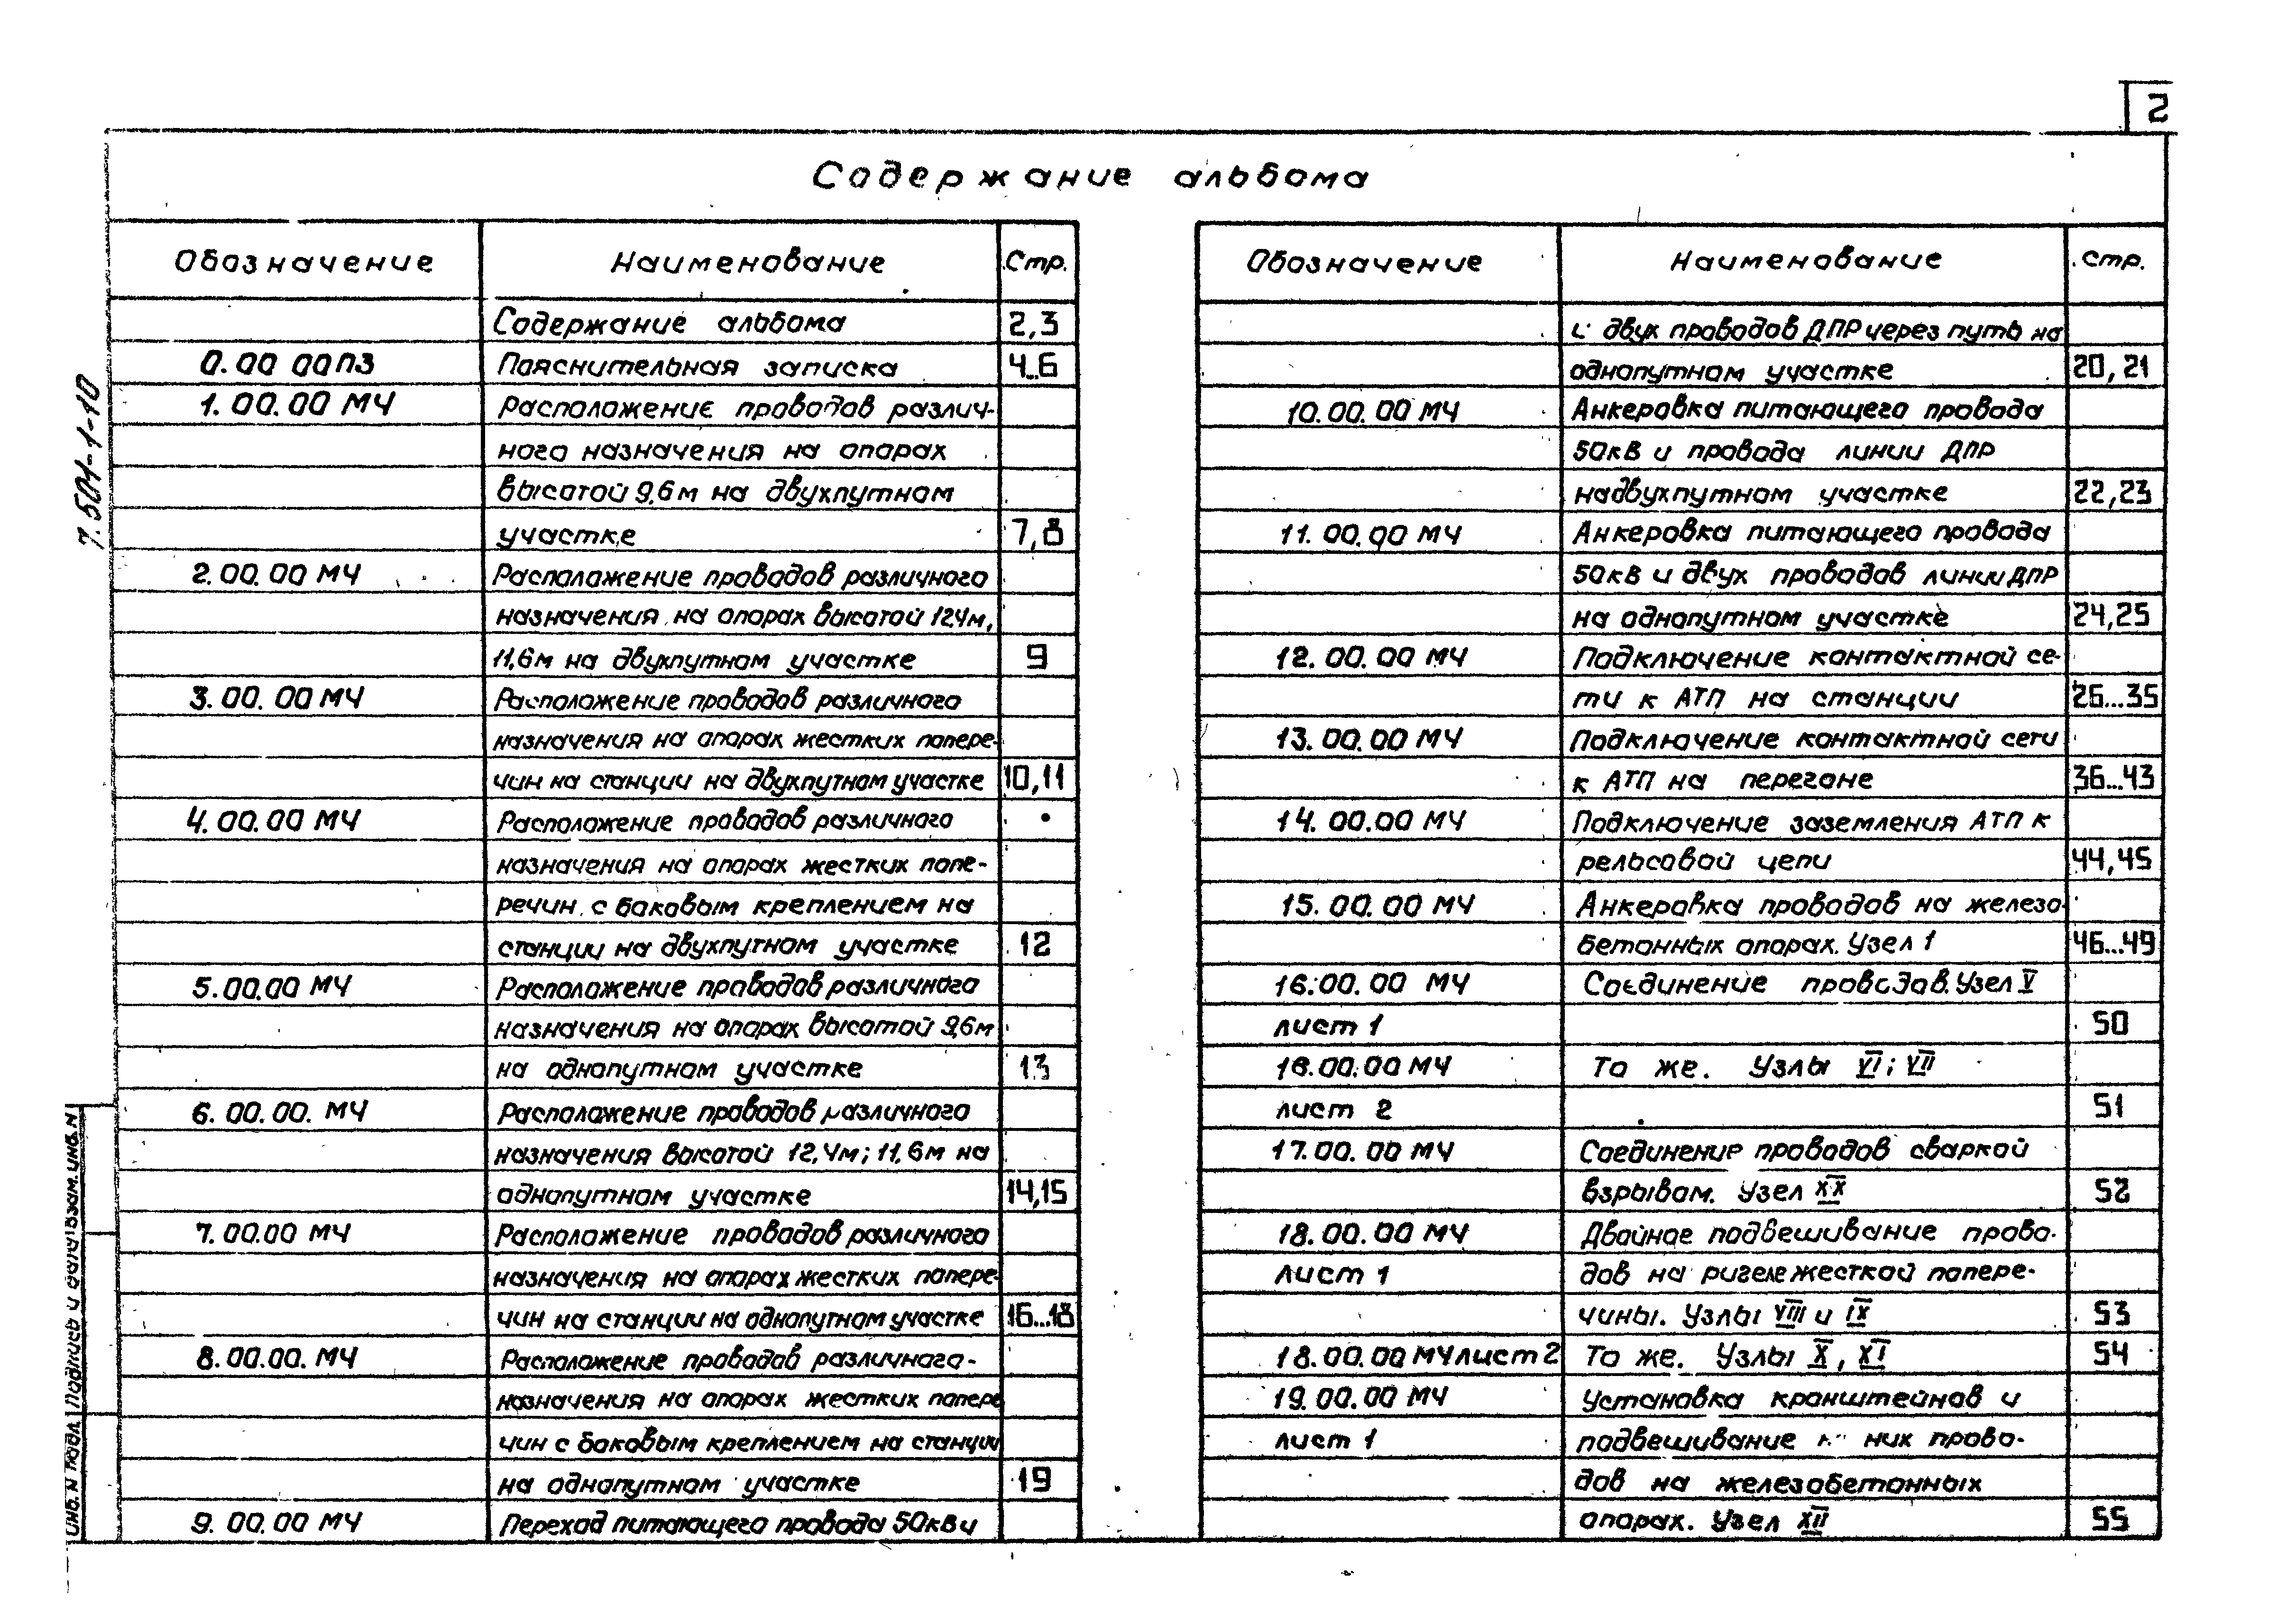 2
Содержание альбома
7.501-1-10
Обозначение Наименование Стр.
Содержание альбома 2,3
0.00 00ПЗ Пояснительная записка 4..6
1.00.00 МЧ Расположение проводов различ-
ного назначения на опорах
высотой 9.6м на двухпутном
участке 7,8
2.00.00 МЧ Расположение проводов различного
назначения на опорах высотой 12.4м,
11,6м на двухпутном участке 9
3.00.00 МЧ Расположение проводов различного
назначения на опорах жестких попере-
чин на станции на двухпутном участке 10,11
4.00.00 МЧ Расположение проводов различного
назначения на опорах жестких попе-
речин с боковым креплением на
станции на двухпутном участке 12
5.00.00 МЧ Расположение проводов различного
назначения на опорах высотой 9,6м
на однопутном участке 13
6.00.00. МЧ Расположение проводов различного
назначения высотой 12,4м; 11,6м на
однопутном участке 14,15
7.00.00 МЧ Расположение проводов различного
назначения на опорах жестких попере-
чин на станции на однопутном участке 16...18
8.00.00. МЧ Расположение проводов различного-
назначения на опорах жестких попере
чин с боковым креплением на станции
на однопутном участке 19
9.00.00 МЧ Переход питающего провода 50кв и
Обозначение Наименование стр.
двух проводов ДПР через путь на
однопутном участке 20,21
10.00.00 МЧ Анкеровка питающего провода
50кв и провода линии ДПР
надвухпутном участке 22,23
11.00.00 МЧ Анкеровка питающего провода
50кв и двух проводов линии ДПР
на однопутном участке 24,25
12.00.00 МЧ Подключение контактной се-
ти к АТП на станции 26...35
13.00.00 МЧ Подключение контактной сети
к АТП на перегоне 36...43
14.00.00 МЧ Подключение заземления АТП к
рельсовой цепи 44,45
15.00.00 МЧ Анкеровка проводов на железо-
бетонных опорах. Узел 1 46...49
16.00.00 МЧ Соединение проводов. Узел V
лист 1 50
16.00.00 МЧ То же. Узлы VI; VII
лист 2 51
17.00.00 МЧ Соединение проводов сваркой
взрывом. Узел XX 52
18.00.00 МЧ Двойное подвешивание прово-
лист 1 дов на ригеле жесткой попере-
чины. Узлы VIII и IX 53
18.00.00 МЧ лист 2 То же. Узлы X, XI 54
19.00.00 МЧ Установка кронштейнов и
лист 1 подвешивание них прово-
дов на железобетонных
опорах. Узел XII 55
Инв. N подл. Подпись и дата Взам. инв. N